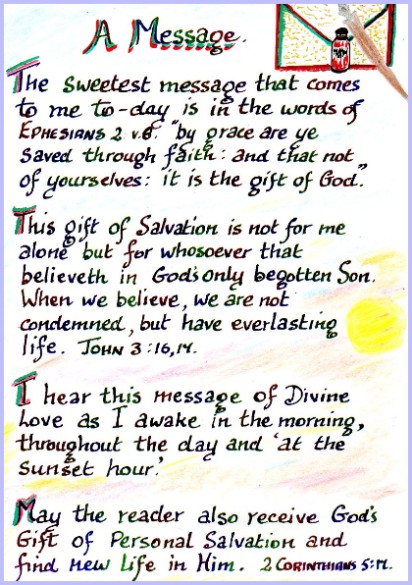 A Message.
The sweetest message that comes
to me to-day is in the words of
EPHESIANS 2 v.8. "by grace are ye
saved through faith: and that not
of yourselves: it is the gift of God."
This gift of Salvation is not for me
alone but for whosoever that
believeth in God's only begotten Son.
When we believe, we are not
condemned, but have everlasting
life. JOHN 3:16,17.
I hear this message of Divine
Love as I awake in the morning,
throughout the day and 'at the
sunset hour.'
May the reader also receive God's
Gift of Personal Salvation and
find new Life in Him. 2 CORINTHIANS 5:17.